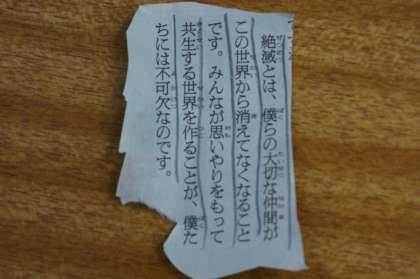 絶滅とは、僕らの大切な仲間が
この世界から消えてなくなること
です。みんなが思いやりをもって
共生する世界を作ることが、僕た
ちには不可欠なのです。